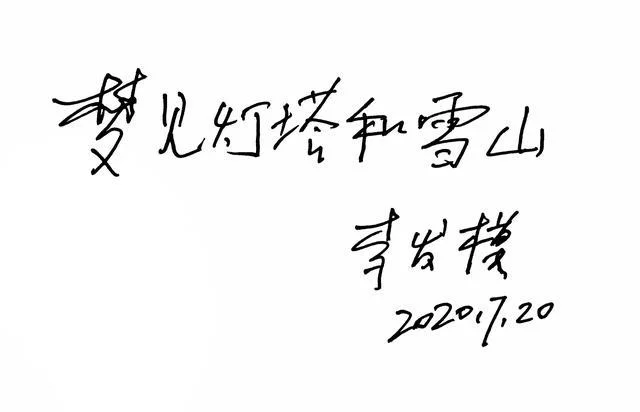 梦见灯塔和雪山
李发模
2020.7.20